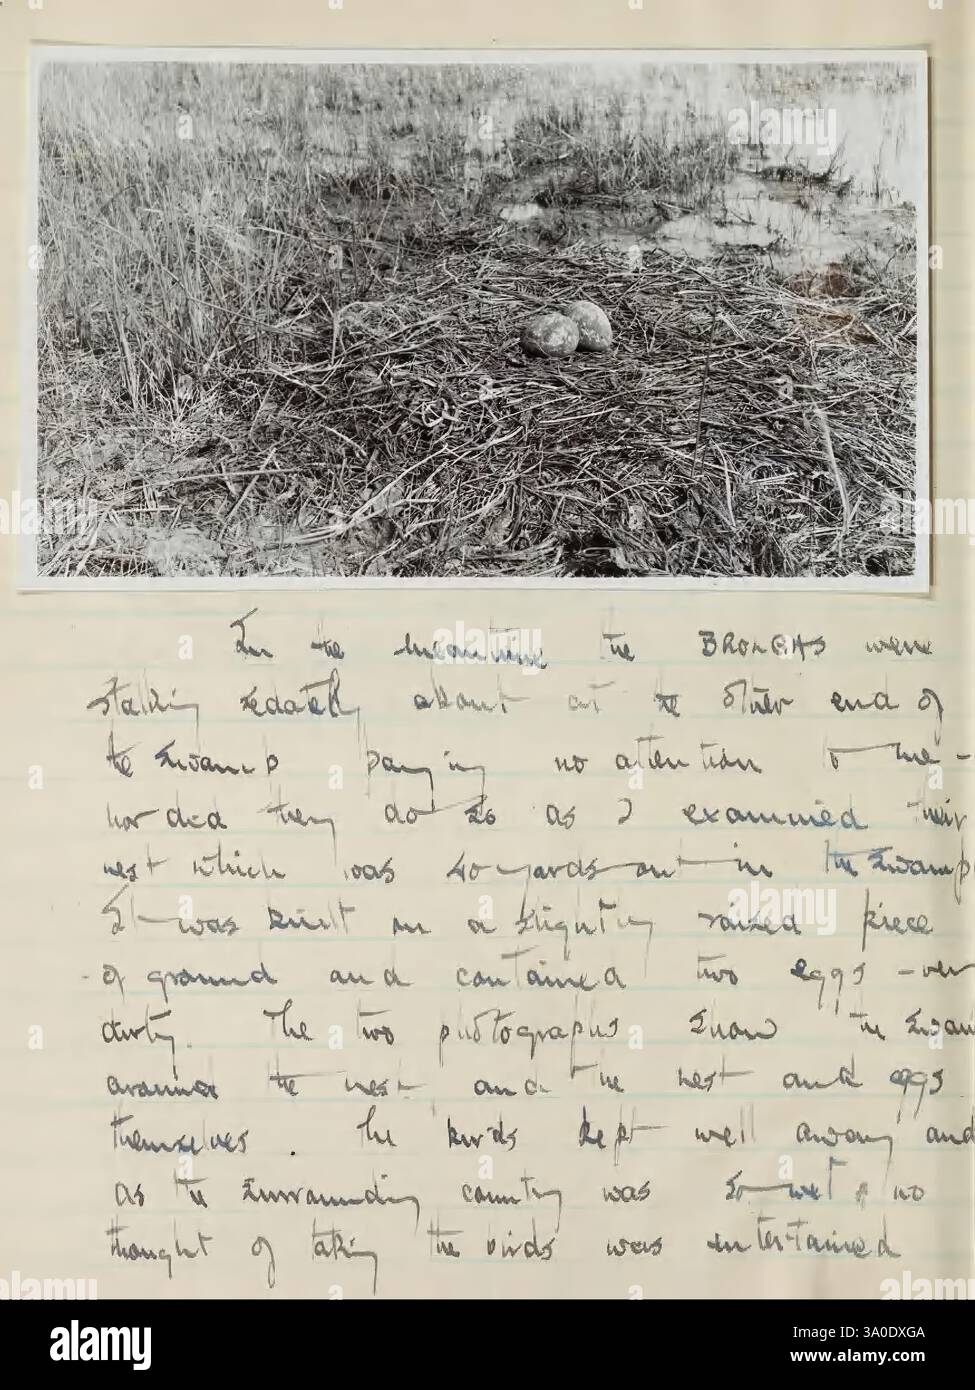 In the meantime the BROLGAS were
stalking sedately about at the other end of
the swamp paying no attention to me -
nor did they do so as I examined their
nest which was 40 yards out in the swamp
It was built on a slightly raised piece
- of ground and contained two eggs - very
dirty. The two photographs show the swam
around the nest and the nest and eggs
themselves. The birds kept well away and
as the surrounding country was so wet no
thought of taking the birds was entertained
alamy
Image ID: 3A0DXGA
www.alamy.com